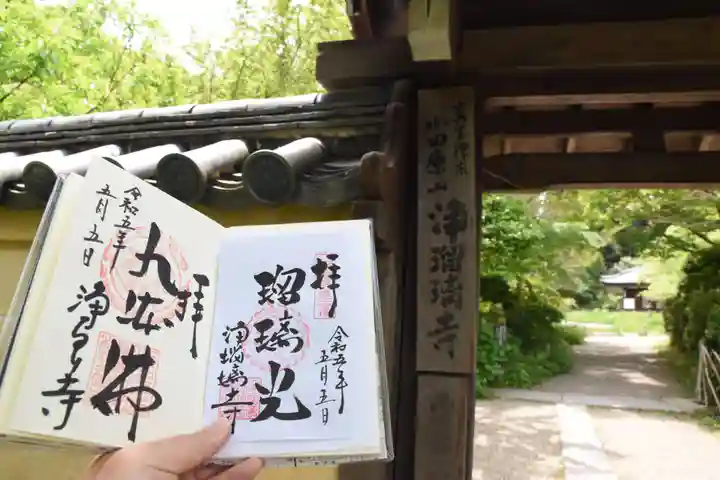 真言律宗
小田原山
浄瑠璃寺
奉拝
九体佛
令和五年
五月五日
拝
令和五年
五月五日
瑠璃光
浄瑠璃寺